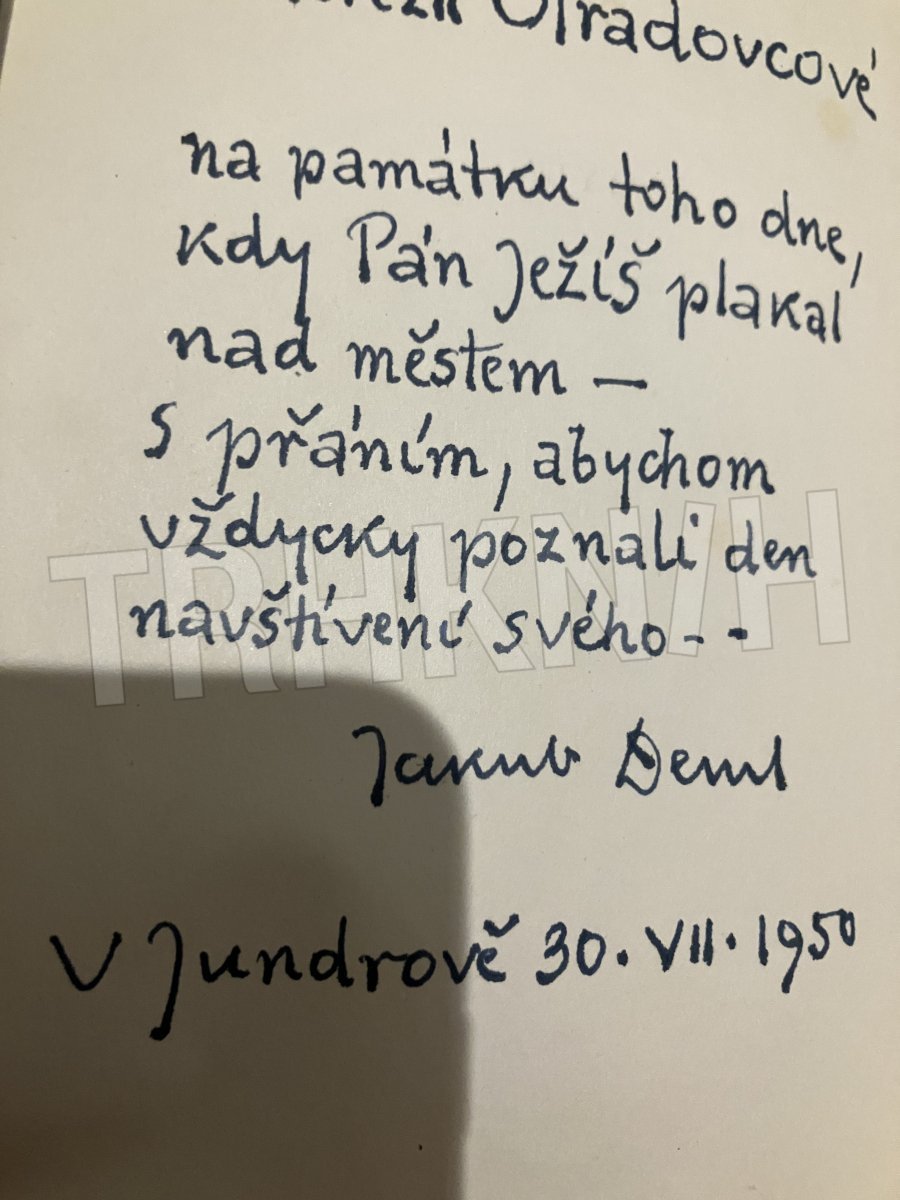 Otradovcové
na památku toho dne,
kdy Pán Ježíš plakal
nad městem —
s přáním, abychom
vždycky poznali den
navštívení svého - -
Jakub Deml
V Jundrově 30. VII. 1950
TRHKNIH